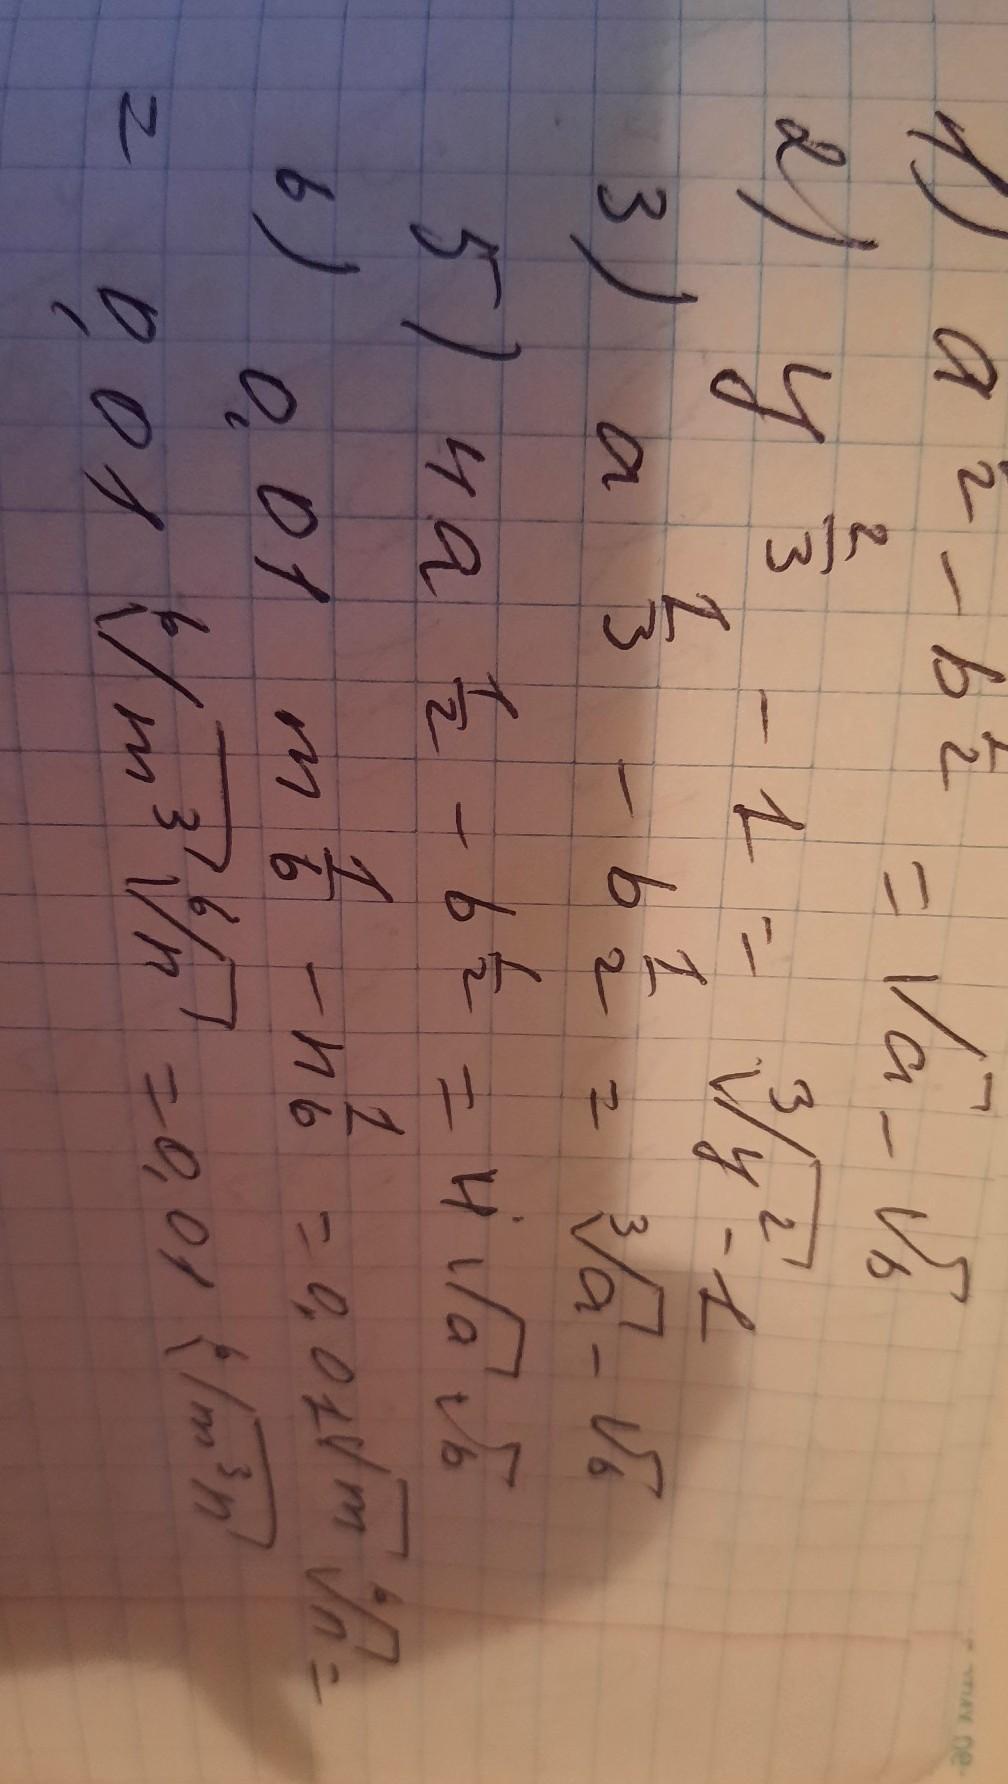 1) a^{\frac{1}{2}} - b^{\frac{1}{2}} = √a - √b
2) y^{\frac{2}{3}} - 1 = ∛y² - 1
3) a^{\frac{1}{3}} - b^{\frac{1}{2}} = ∛a - √b
5) 4a^{\frac{1}{2}} - b^{\frac{1}{2}} = 4√a √b
6) 0,01 m^{\frac{1}{6}} - n^{\frac{1}{6}} = 0,01 √m ⁶√n =
= 0,01 ⁶√m³ ⁶√n = 0,01 ⁶√m³n